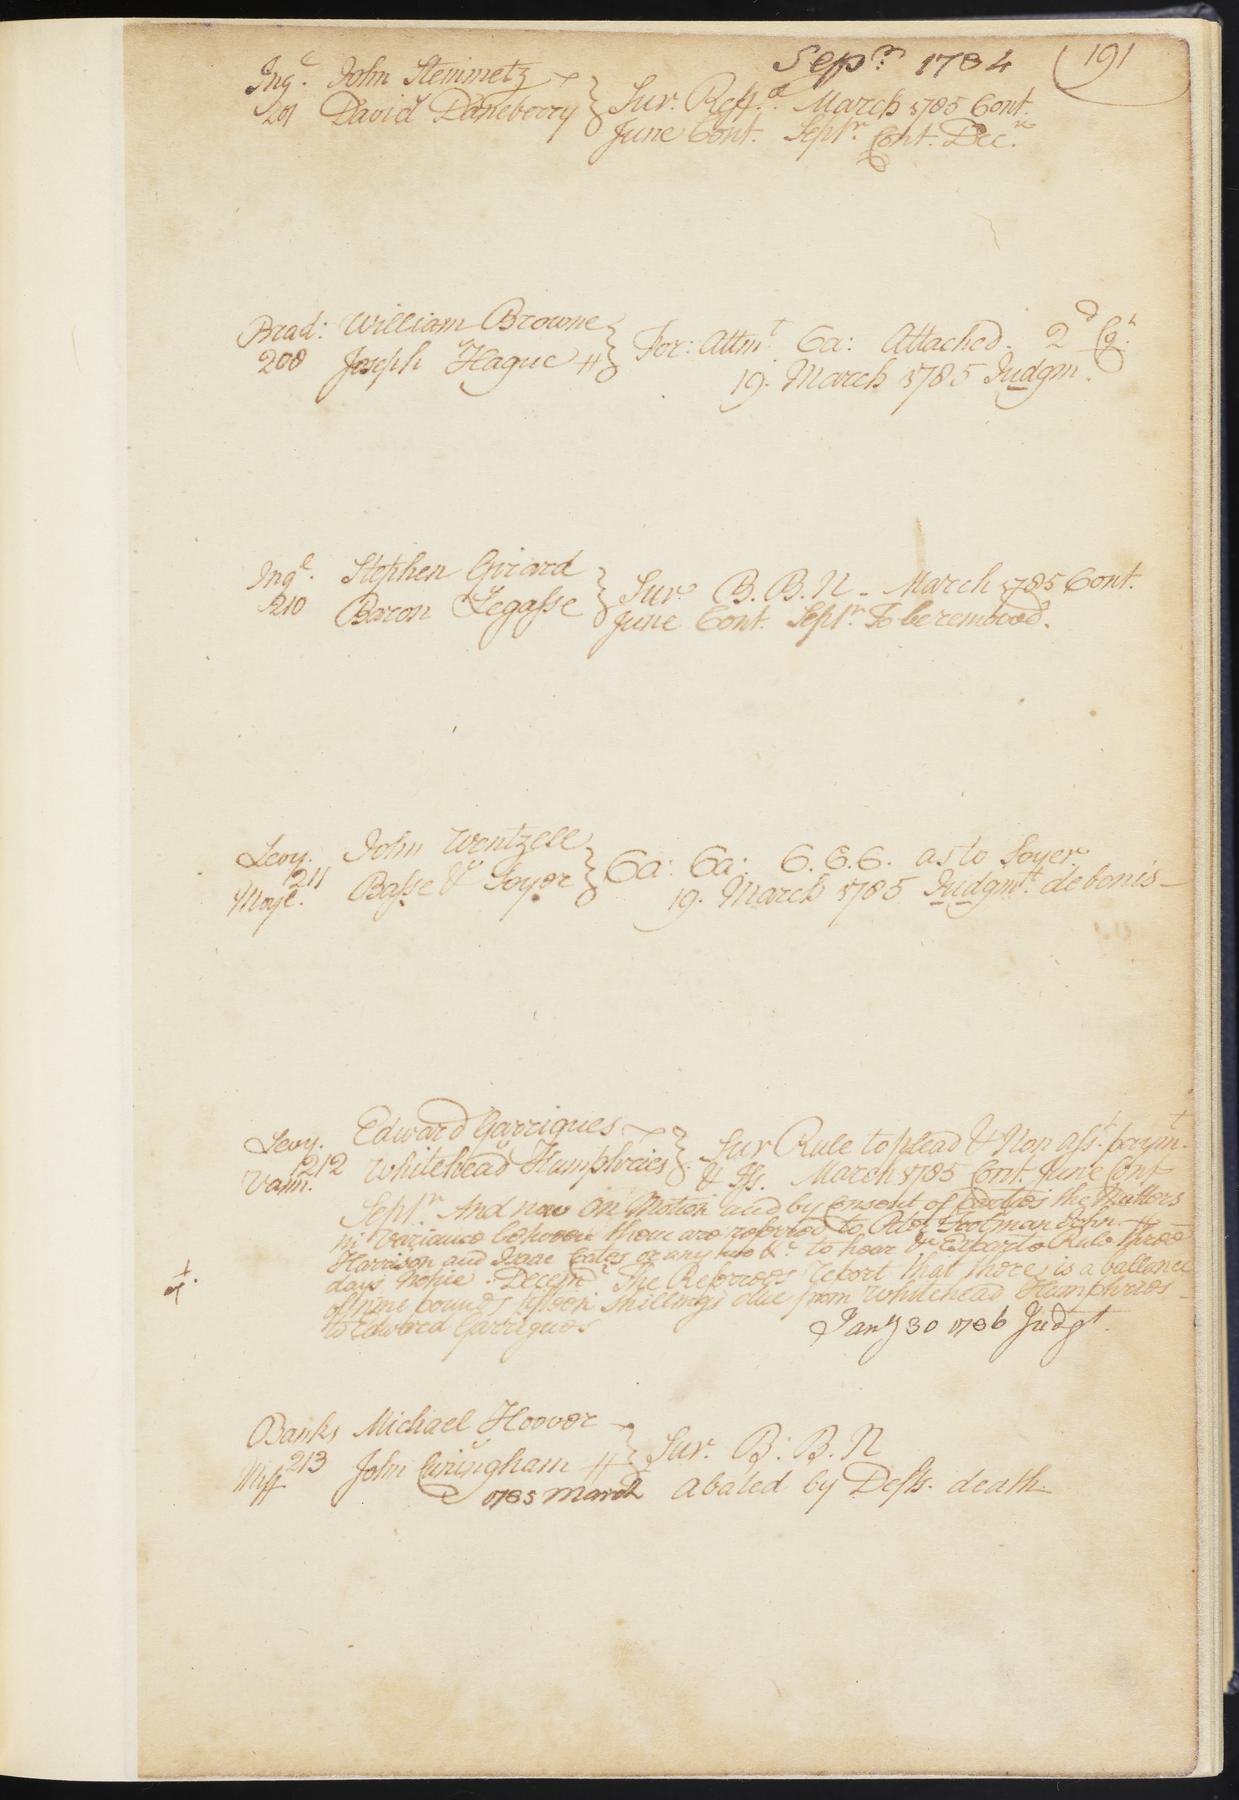 Sepr. 1784 (191
Ingl. John Steinmetz
201 David Daneberry } Sur. Reff.d March 1785 Cont.
June Cont. Septr. Cont. Decr.
Brad: William Browne
208 Joseph Hague # } For: Attmt Ca: Attached. 2d
19. March 1785 Judgm.
Ingl. Stephen Girard
210 Baron Segasse } Sur B. B. N - March 1785 Cont.
June Cont. Septr. To be removed.
Levy. John Wentzell
211 Basse & Soyer } Ca: Ca: C.C.C. as to Soyer
Moyl. 19. March 1785 Judgmt. de bonis
Levy. Edward Garrigues
212 Whitehead Humphreies } Sur Rule to plead & Non asst. paymt.
Vann. & Iss. March 1785 Cont. June Cont
Septr. And now On Motion and by Consent of Parties the Matters
in variance between them are referred to Footman John
Harrison and Isaac Cates or any two &c to hear &c Exparte Rule three
days Notice. Decemr. The Referrees report that there is a ballance
of nine pounds fifteen shillings due from Whitehead Humphries
to Edward Garrigues
Jany 30 1786 Judgt.
Banks Michael Hoover
213 John Cuningham # } Sur. B. B. N
Miff. 1785 March Abated by Defts. death